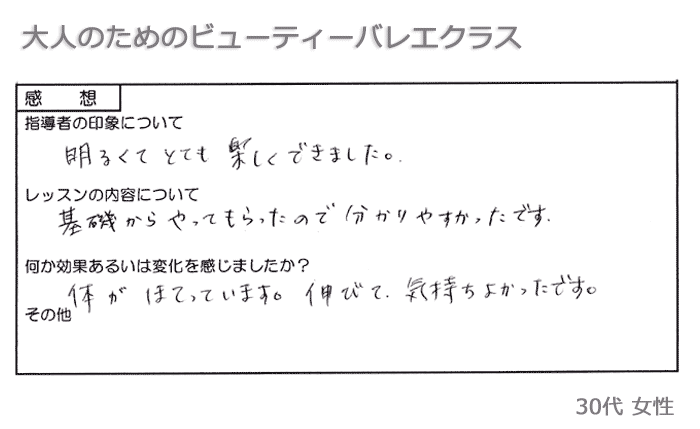 大人のためのビューティーバレエクラス
感 想
指導者の印象について
明るくてとても楽しくできました。
レッスンの内容について
基礎からやってもらったので分かりやすかったです.
何か効果あるいは変化を感じましたか？
体がほてっています。伸びて、気持ちよかったです。
その他
30代 女性